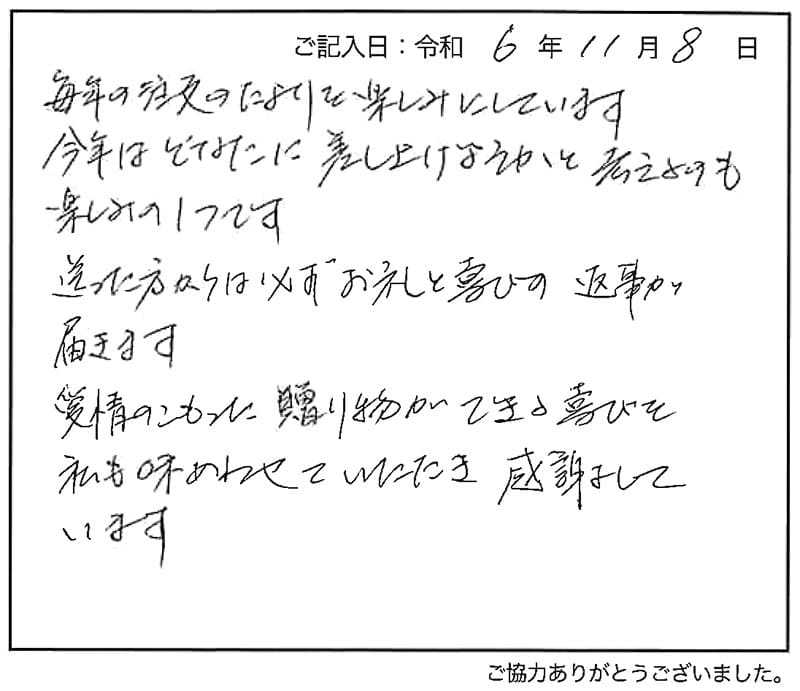 ご記入日：令和 6 年 11 月 8 日
毎年の注文のたよりを楽しみにしています
今年はどなたに差し上げようかと考えるのも
楽しみの1つです
送った方からは必ずお礼と喜びの返事が
届きます
愛情のこもった贈り物ができる喜びを
私も味わわせていただき感謝をして
います
ご協力ありがとうございました。